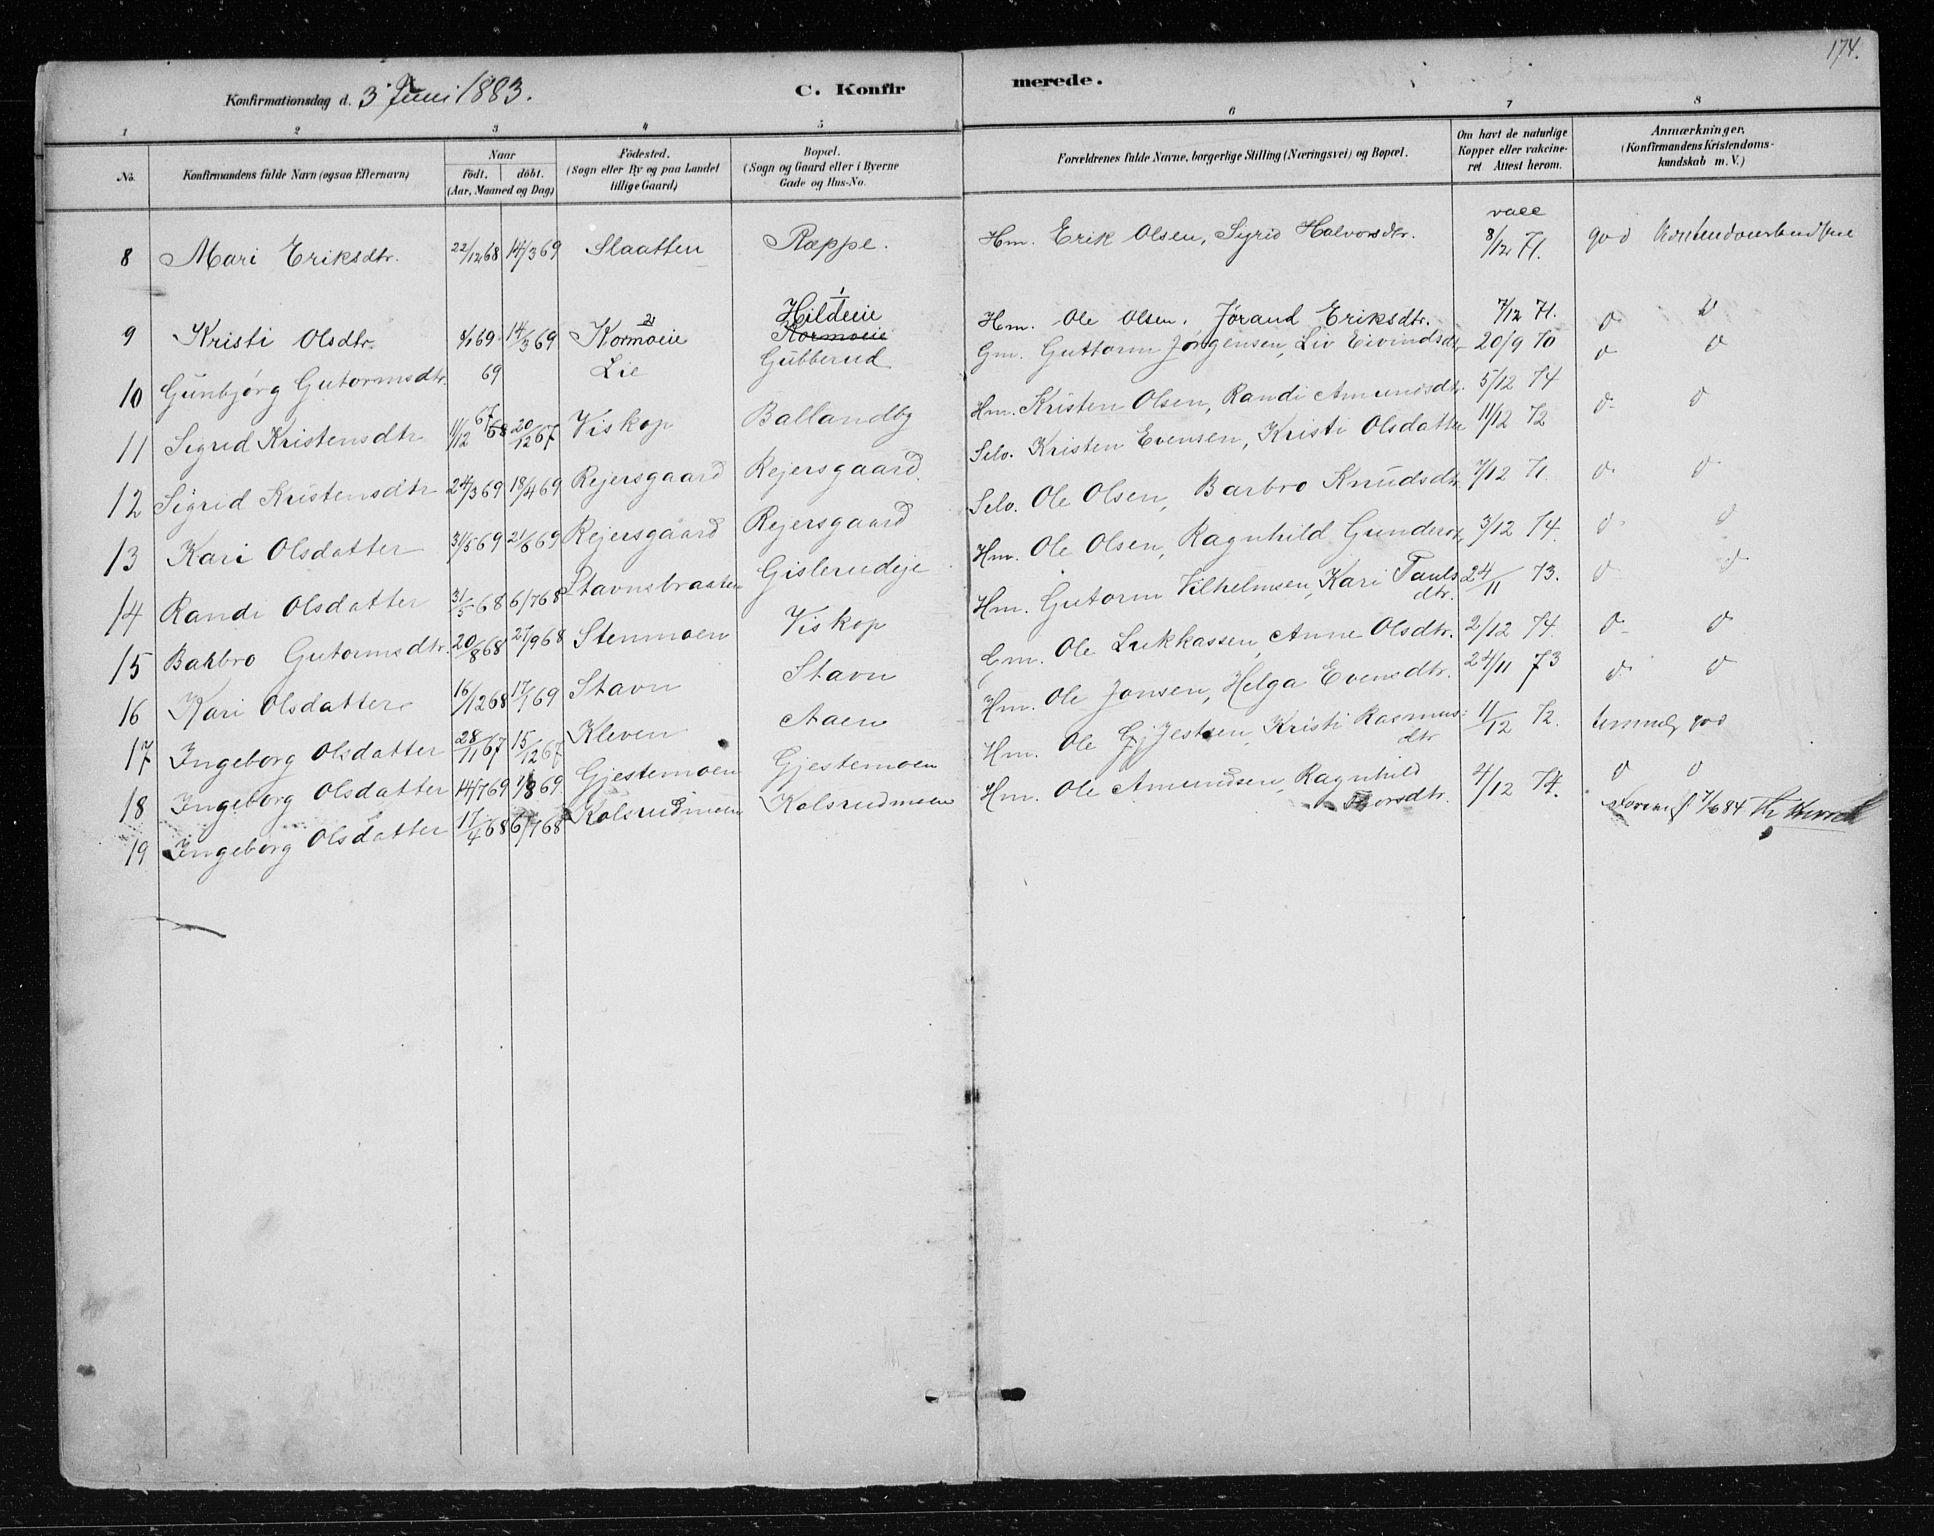 174.
Konfirmationsdag d. 3 Juni 1883. C. Konfir merede.
1 2 3 4 5 6 7 8
No. Konfirmandens fulde Navn (ogsaa Efternavn) Naar födt. döbt. (Aar, Maaned og Dag) Födested. (Sogn eller By og paa Landet tillige Gaard) Bopæl. (Sogn og Gaard eller i Byerne Gade og Hus-No. Forældrenes fulde Navne, borgerlige Stilling (Næringsvei) og Bopæl. Om havt de naturlige Kopper eller vakcineret Attest herom. Anmærkninger, (Konfirmandens Kristendomskundskab m. V.)
8 Mari Eriksdtr. 22/12 68 14/3 69 Slaatten Ræppe. Hm. Erik Olsen, Sigrid Halvorsdtr. vacc 8/12 71. god
9 Kristi Olsdtr. 8/1 69 14/3 69 Kormoeie Hildeeie Kormoeie Hm. Ole Olsen, Jørand Eriksdtr. 7/12 71. d d
10 Gunbjørg Gutormsdtr. 69 Lie Gubberud Gm. Guttorm Jørgensen, Liv Eivindsdtr 20/9 70 d d
11 Sigrid Kristensdtr 11/12 67/68 20/12 67 Viskop Ballandby Hm. Kristen Olsen, Randi Amundsdtr. 5/12 74 d d
12 Sigrid Kristensdtr 24/3 69 18/4 69 Rejersgaard Rejersgaard Selv. Kristen Evensen, Kristi Olsdatter 11/12 72
13 Kari Olsdatter 31/5 69 21/6 69 Rejersgaard Rejersgaard Selv. Ole Olsen, Barbro Knudsdtr. 7/12 71. d d
14 Randi Olsdatter 31/5 68 6/7 68 Stavnsbraaten Gislerudeje Hm. Ole Olsen, Ragnhild Gundersd. 3/12 74. d d
15 Barbro Gutormsdtr. 20/8 68 27/9 68 Stenmoen Viskop Hm. Gutorm Vilhelmsen, Kari Paulsdtr. 24/11 73. d d
16 Kari Olsdatter 16/12 68 17/1 69 Stavn Stavn Gm. Ole Lukkassen, Anne Olsdtr. 2/12 74. d d
17 Ingeborg Olsdatter 28/11 67 15/12 67 Kleven Aaen Hm. Ole Jonsen, Helga Evensdtr. 24/11 73 d d
18 Ingeborg Olsdatter 14/7 69 1/8 69 Gjestemoen Gjestemoen Hm. Ole Gjestsen, Kristi Rasmusdtr 11/12 72. god
19 Ingeborg Olsdatter 17/4 68 6/7 68 Kolsrudmoen Kolsrudmoen Hm. Ole Amundsen, Ragnhild Thorsdtr. 4/12 74. d d
7/6 84